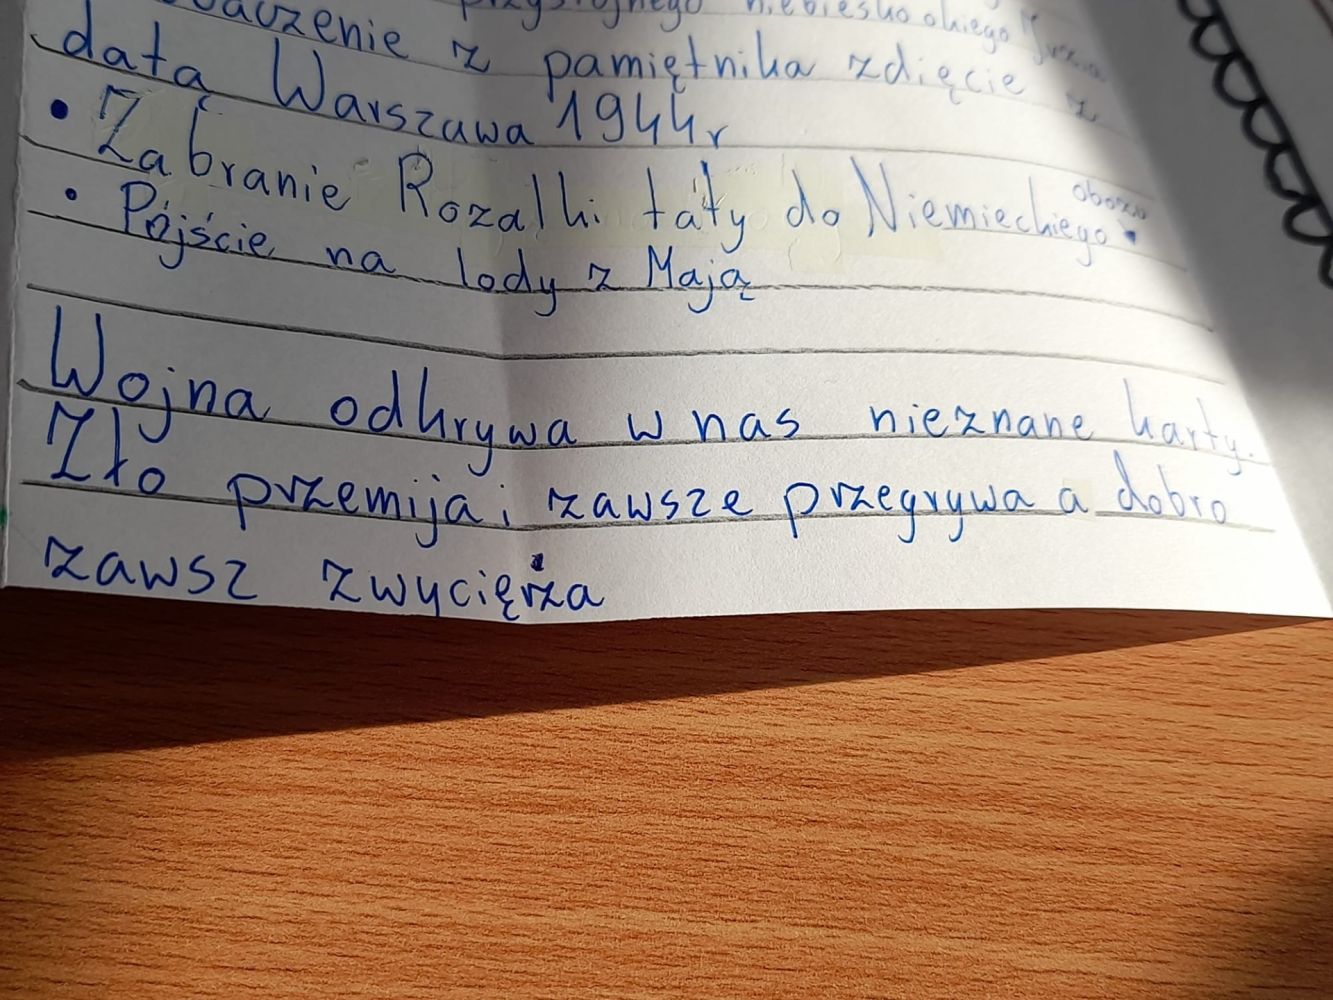 przystojnego niebieskookiego
z pamiętnika zdięcie z
datą Warszawa 1944r
• Zabranie Rozalki taty do Niemieckiego obozu
• Pójście na lody z Mają
Wojna odkrywa w nas nieznane karty.
Zło przemija i zawsze przegrywa a dobro
zawsz zwycięża